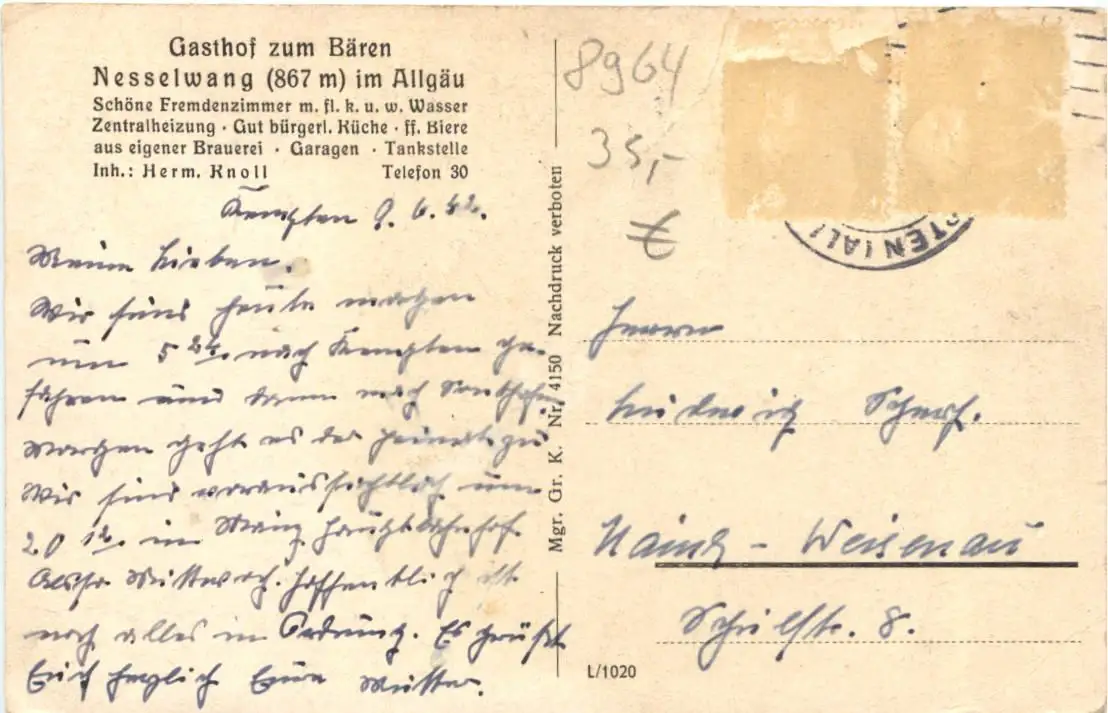 Gasthof zum Bären
Nesselwang (867 m) im Allgäu
Schöne Fremdenzimmer m. fl. k. u. w. Wasser
Zentralheizung · Gut bürgerl. Küche · ff. Biere
aus eigener Brauerei · Garagen · Tankstelle
Inh.: Herm. Knoll Telefon 30
Kempten 9. 6. 42.
Meine Lieben.
Wir sind heute morgen
um 5 24. nach Kempten ge-
fahren und dann nach Sonthofen
Morgen geht es der Heimat zu
Wir sind voraussichtlich um
20 12. in Mainz Hauptbahnhof.
Also Mittwoch. Hoffentlich ist
noch alles in Ordnung. Es grüßt
Euch herzlich Eure Mutter.
Mgr. Gr. K. Nr. 4150 Nachdruck verboten
8964
35,-
€
PTEN (AL
Herrn
Ludwig Scherf.
Mainz - Weisenau
Schulstr. 8.
L/1020